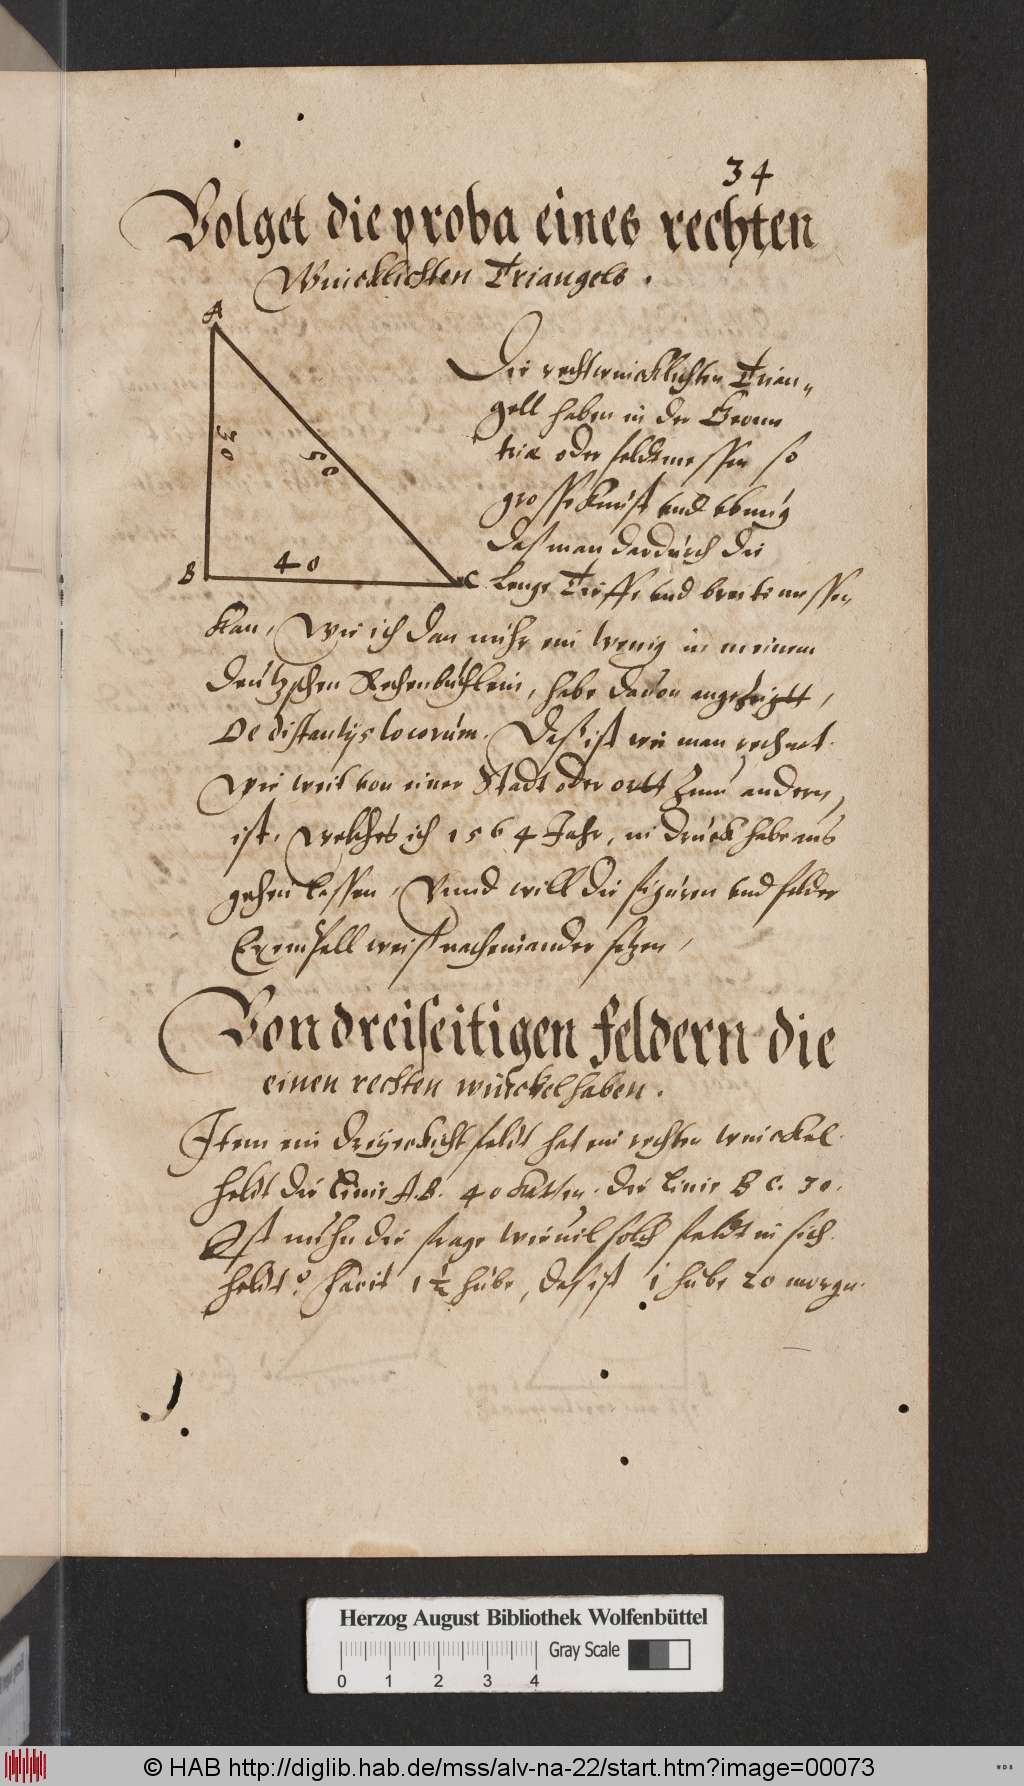 34
Volget die proba eines rechten
Winicklichten Triangels.
A
30
50
B
40
C
Die rechtwinicklichten Trian„
gell haben in der Geome
triæ oder feldtmessen so
grosse Kunst vnd vbung
das man dardurch die
Lenge Tieffe vnd breite messen
kan, Wie ich dan mihr ein wenig in meinem
Deutzschen Rechenbuchlein, habe dauon angezeigtt,
De distantijs locorum. Das ist wie man rechnet.
Wie weit von einer Stadt oder ortt zum andern,
ist, welches ich 1564 Jahr, in druck habe aus
gehen lassen, Vnnd will die figuren vnd felder
Exempell weis nacheinander setzen,
Von dreiseitigen feldern die
einen rechten winckel haben.
Item ein dreyeckicht feldt hat ein rechten winickel
heldt die Linie A.B. 40 Rutten. die Linie B C. 30.
Ist nuhn die frage wieuil solch feldt in sich
heldt? facit 1½ hube, das ist 1 hube 20 morgen.
Herzog August Bibliothek Wolfenbüttel
0 1 2 3 4
Gray Scale
© HAB http://diglib.hab.de/mss/alv-na-22/start.htm?image=00073